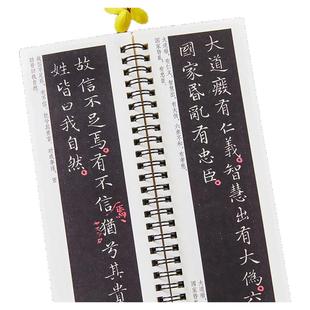 大道癈有仁義。智慧出有大偽。六
國家昏亂有忠臣。
故信不足焉有不信猶兮其貴
焉
姓皆曰我自然。